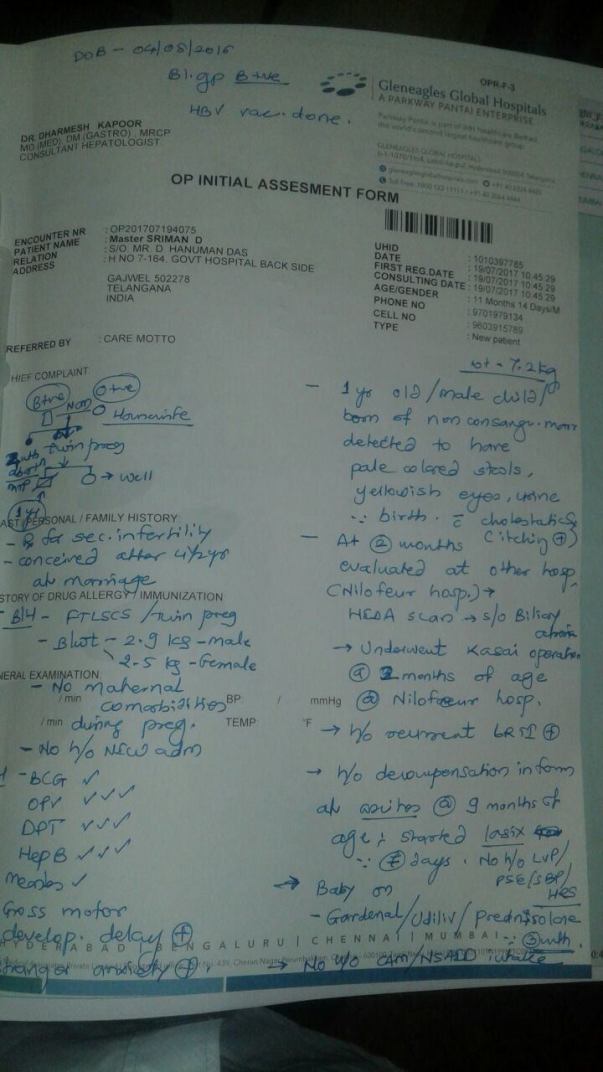 DOB - 04/08/2016
Bl. gp B+ve
HBV vac. done.
OPR-F-3
Gleneagles Global Hospitals
A PARKWAY PANTAI ENTERPRISE
Parkway Pantai is part of IHH Healthcare Berhad,
the world's second largest healthcare group.
GLENEAGLES GLOBAL HOSPITALS
DR. DHARMESH KAPOOR
MD (MED), DM (GASTRO), MRCP
CONSULTANT HEPATOLOGIST
OP INITIAL ASSESMENT FORM
ENCOUNTER NR : OP201707194075
PATIENT NAME : Master SRIMAN D
RELATION : S/O MR. D HANUMAN DAS
ADDRESS : H NO 7-164, GOVT HOSPITAL BACK SIDE
GAJWEL 502278
TELANGANA
INDIA
UHID : 1010397785
DATE : 19/07/2017 10:45:29
FIRST REG.DATE : 19/07/2017 10:45:29
CONSULTING DATE : 19/07/2017 10:45:29
AGE/GENDER : 11 Months 14 Days/M
PHONE NO : 9701979134
CELL NO : 9603915789
TYPE : New patient
REFERRED BY : CARE MOTTO
wt - 7.2 kg
HIEF COMPLAINT:
B+ve NCM O+ve
Housewife
twin preg
→ well
1 yr
AST / PERSONAL / FAMILY HISTORY:
- Rx for sec. infertility
- conceived after 4 1/2 yrs
of marriage
STORY OF DRUG ALLERGY / IMMUNIZATION:
- B/H - FTLSCS / twin preg
- B/wt - 2.9 kg - male
2.5 kg - female
NERAL EXAMINATION:
- No maternal
/min comorbidities BP: / mmHg
/min during preg. TEMP: °F
- No h/o NICU adm
- BCG ✓
OPV ✓✓✓
DPT ✓✓✓
Hep B ✓✓✓
Measles ✓
Gross motor
develop. delay ⊕
stranger anxiety ⊕
- 1 yr old / male child /
born of non consangu. marr
detected to have
pale colored stools,
yellowish eyes, urine
∵ birth. c̄ cholestatic
(itching ⊕)
- At @ 2 months
evaluated at other hosp
(Nilofeur hosp.) →
HIDA scan → s/o Biliary
atresia
→ Underwent Kasai operation
@ 2 months of age
@ Nilofeur hosp.
→ h/o recurrent LRTI ⊕
→ h/o decompensation in form
of ascites @ 9 months of
age; started lasix
∵ 7 days. No h/o LVP/
PSE/SBP/
HRS
→ Baby on
- Gardenal/Udiliv/Prednisolone
∵ 3 mth.
→ No h/o CAM/NSAID intake
HYDERABAD | BENGALURU | CHENNAI | MUMBAI